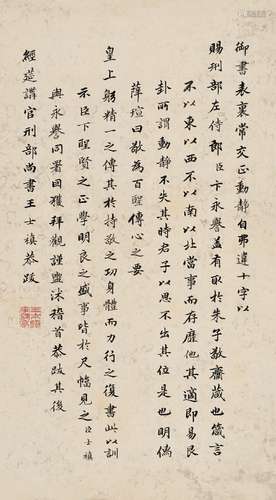 御書表裏常交正動靜自弗違十字以
賜刑部左侍郎臣卞永譽蓋有取於朱子敬齋箴也箴言
不以東西不以南北當事而存靡他其適即易艮
卦所謂動靜不失其時君子以思不出其位是也明儒
薛瑄曰敬為百聖傳心之要
皇上躬精一之傳其於持敬之功身體而力行之復書此以訓
示臣下聖賢之正學明良之盛事皆於尺幅見之臣士禛
與永譽同署因獲拜觀謹盥沐稽首恭跋其後
經筵講官刑部尚書王士禛恭跋